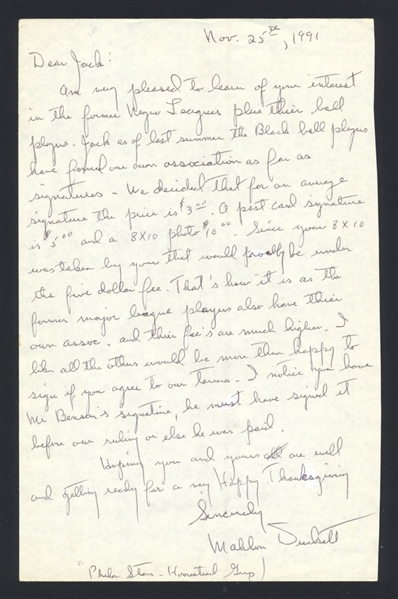 Nov. 25th, 1991
Dear Jack:
Am very pleased to learn of your interest
in the former Negro Leagues plus their ball
players. Jack as of last summer the Black ball players
have formed our own association as far as
signatures - We decided that for an average
signature the price is $3.00. A post card signature
is $5.00 and a 8x10 photo $10.00. Since your 8x10
was taken by you that would probably be under
the five dollar fee. That's how it is as the
former major league players also have their
own assoc. and their fee's are much higher. I
like all the others would be more then happy to
sign if you agree to our terms. I notice you have
Mr Benson's signature, he must have signed it
before our ruling or else he was paid.
Hoping you and yours all are well
and getting ready for a very Happy Thanksgiving
Sincerely
Mahlon Duckett
"Phila Stars - Homestead Grays)